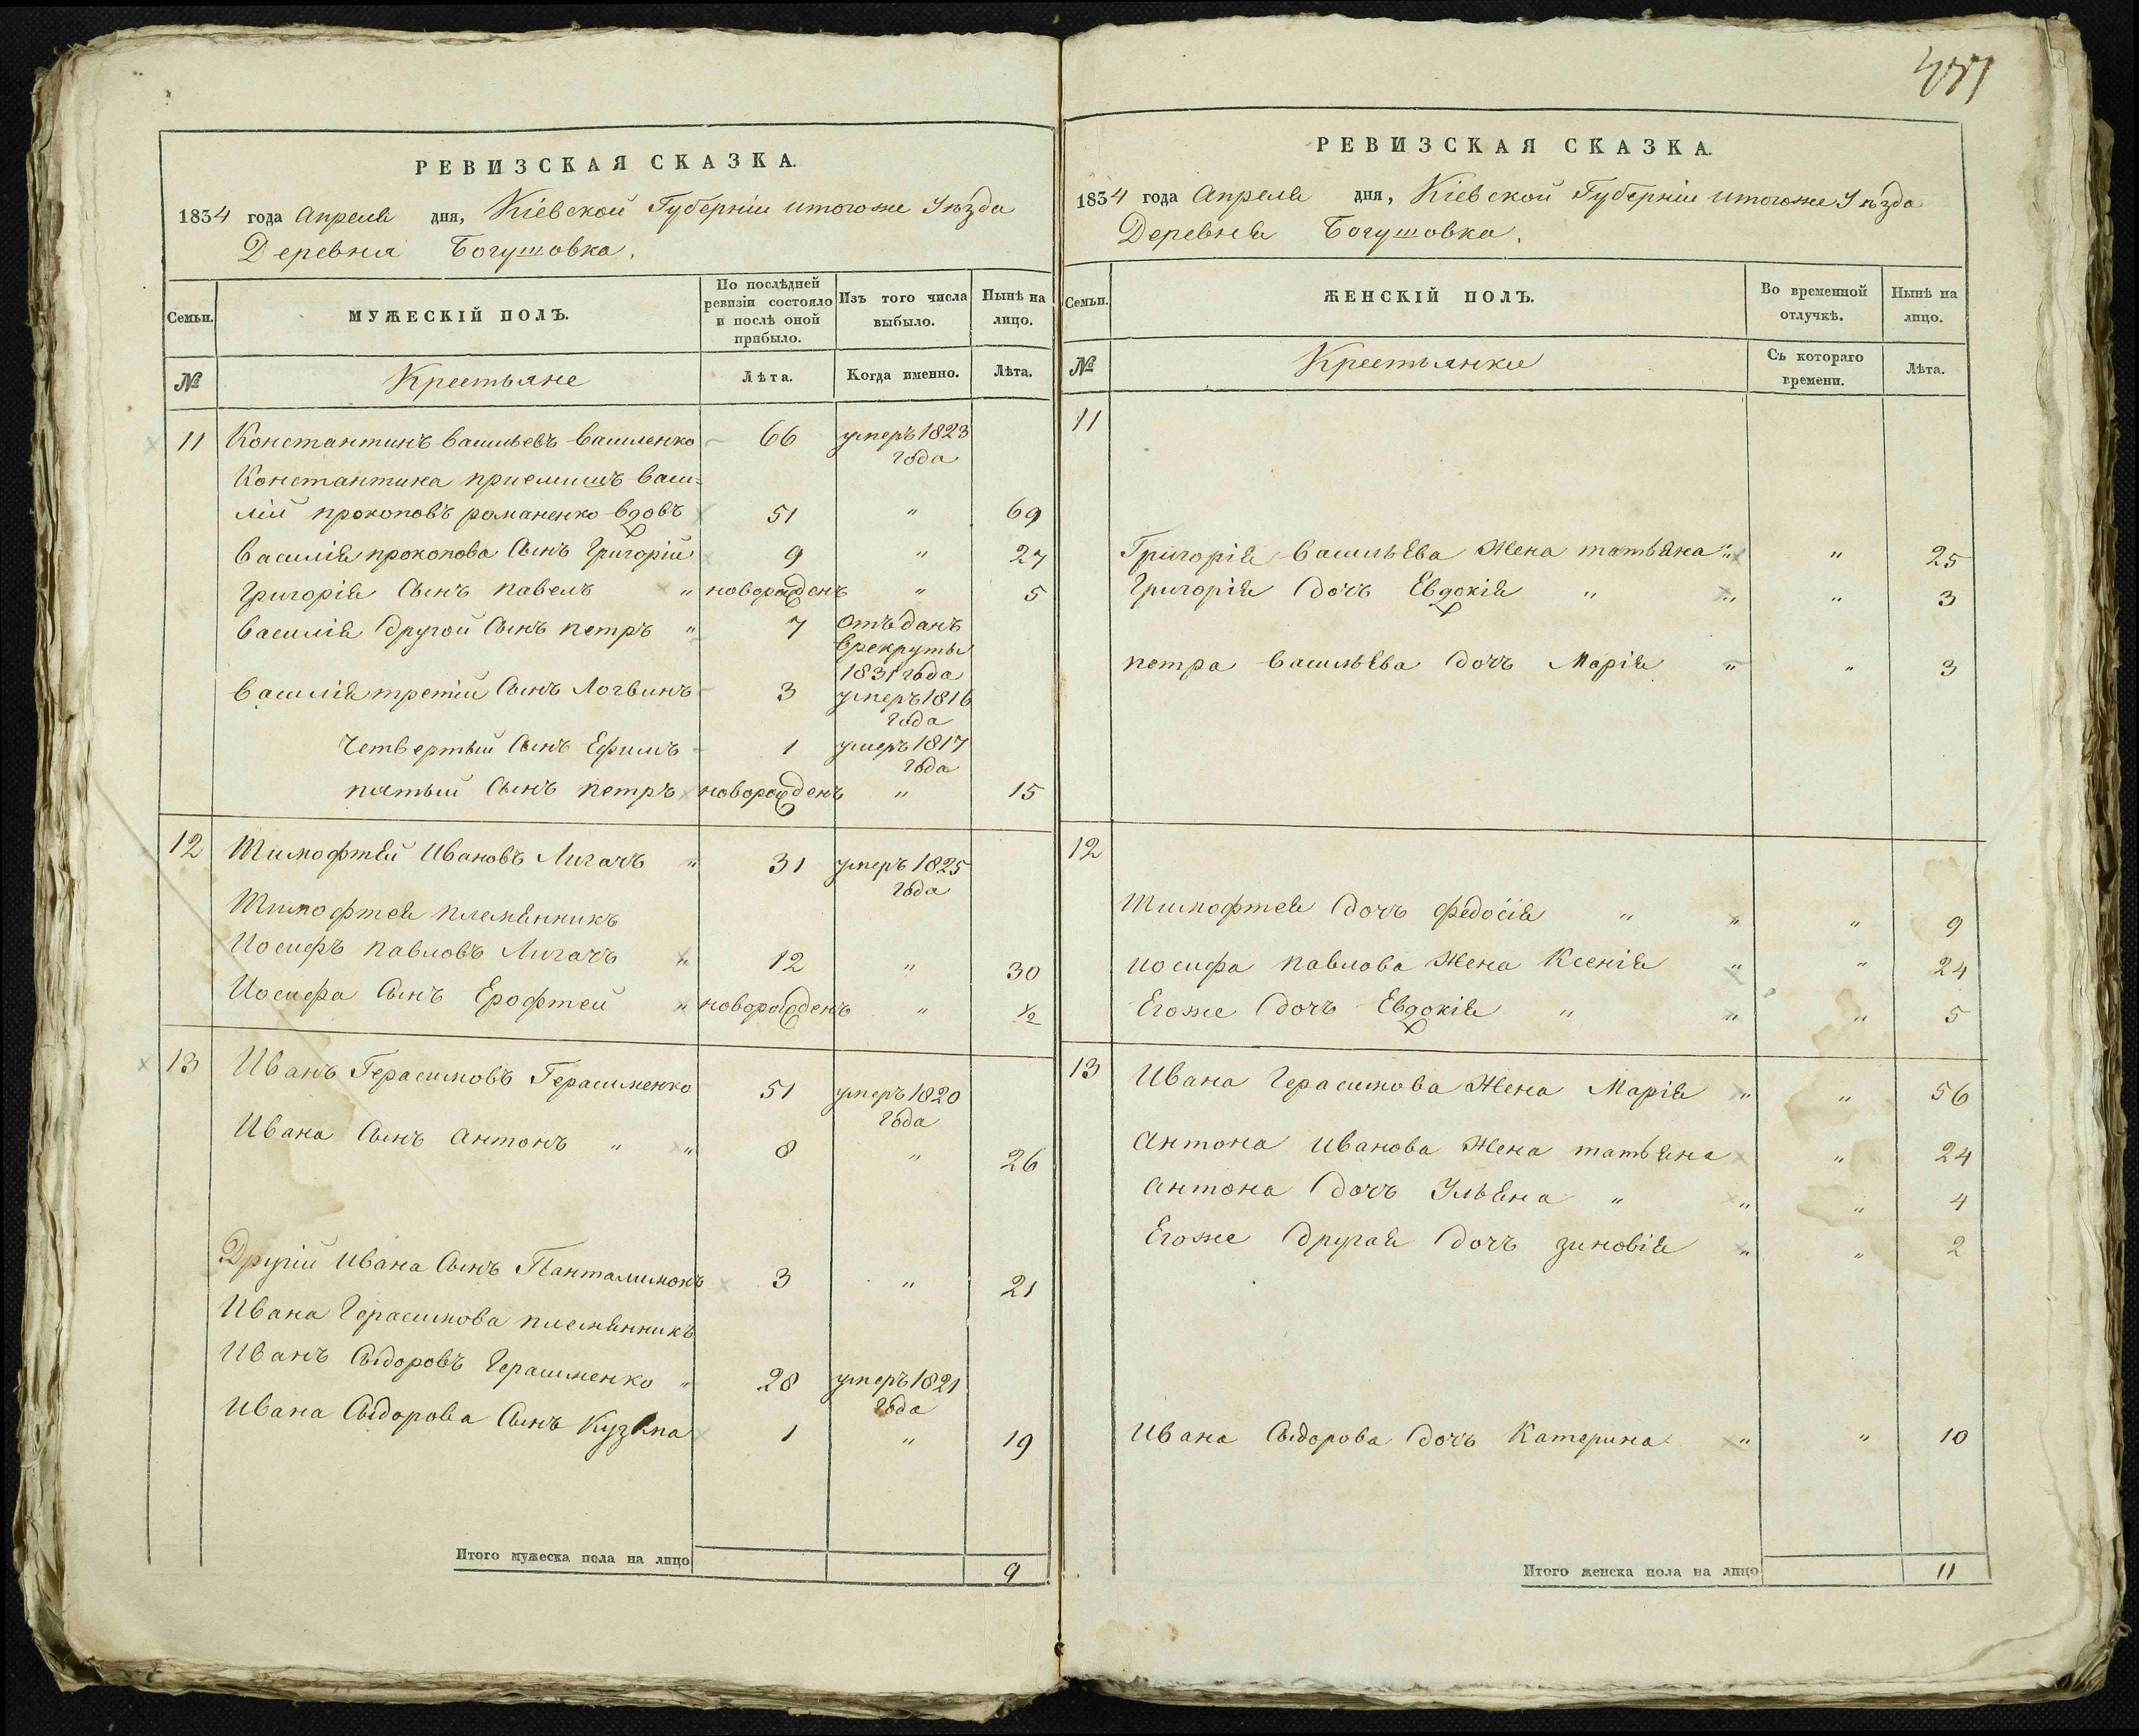 РЕВИЗСКАЯ СКАЗКА.
1834 года Апреля дня, Кіевской Губерніи итогоже Уѣзда
Деревня Богушовка.
Семьи. МУЖЕСКІЙ ПОЛЪ. По послѣдней ревизіи состояло и послѣ оной прибыло. Изъ того числа выбыло. Нынѣ на лицо.
№ Крестьяне Лѣта. Когда именно. Лѣта.
11 Константинъ Васильевъ Василенко 66 умеръ 1823
года
Константина приемишъ Васи-
лій прокоповъ романенко вдовъ 51 " 69
Василія прокопова Сынъ Григорій 9 " 27
Григорія Сынъ павелъ " новорожденъ " 5
Василія другой Сынъ петръ " 7 отъданъ
врекруты
1831 года
Василія третій Сынъ Логвинъ 3 умеръ 1816
года
Четвертый Сынъ Ефимъ 1 умеръ 1817
года
пятый Сынъ петръ новорожденъ " 15
12 Тимофтѣй Ивановъ Лигачъ " 31 умеръ 1825
года
Тимофтея племянникъ
Иосифъ павловъ Лигачъ " 12 " 30
Иосифа Сынъ Ерофтей " новорожденъ " 1/2
13 Иванъ Герасимовъ Герасименко 51 умеръ 1820
года
Ивана Сынъ Антонъ " " 8 " 26
Другій Ивана Сынъ Панталимонъ 3 " 21
Ивана Герасимова племянникъ
Иванъ Сыдоровъ Герасименко " 28 умеръ 1821
года
Ивана Сыдорова Сынъ Кузьма 1 " 19
Итого мужеска пола на лицо 9
РЕВИЗСКАЯ СКАЗКА.
1834 года Апреля дня, Кіевской Губерніи итогоже Уѣзда
Деревня Богушовка.
Семьи. ЖЕНСКІЙ ПОЛЪ. Во временной отлучкѣ. Нынѣ на лицо.
№ Крестьянки Съ котораго времени. Лѣта.
11
Григорія Васильева Жена татьяна " " 25
Григорія дочъ Евдокія " " " 3
петра Васильева дочъ Марія " " 3
12
Тимофтея дочъ федосія " " " 9
иосифа павлова Жена Ксенія " " 24
Егоже дочъ Евдокія " " " 5
13 Ивана Герасимова Жена Марія " " 56
Антона Иванова Жена татьяна " 24
Антона дочъ Ульяна " " " 4
Егоже другая дочъ зиновія " " 2
Ивана Сыдорова дочь Катерина " " 10
Итого женска пола на лицо 11